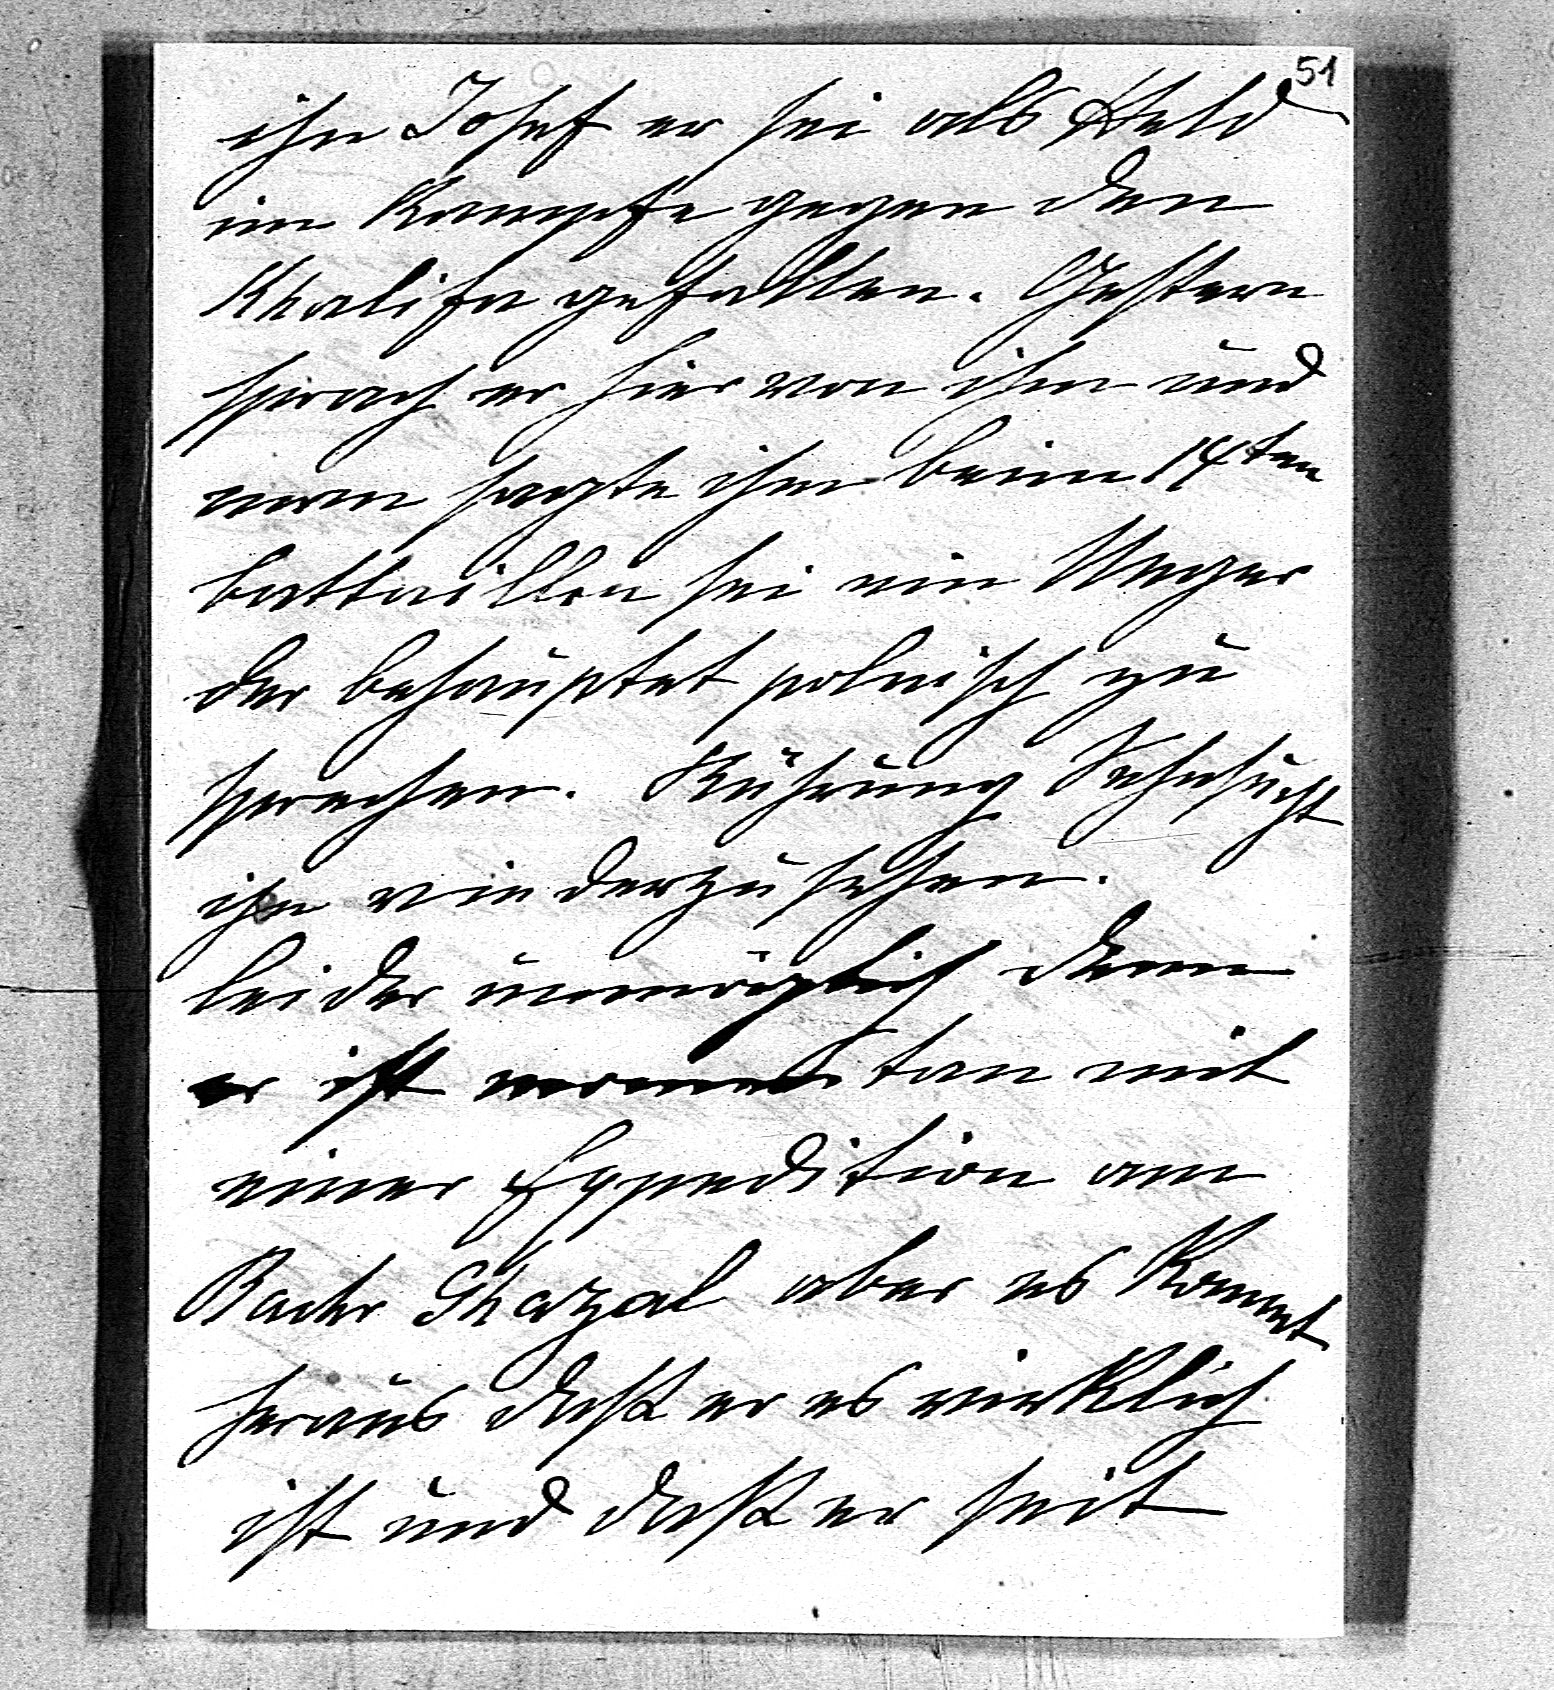 51
ihn Josef er sei als Held
im Kampfe gegen den
Khalifa gefallen. Gestern
sprach er hier von ihm und
man sagte ihm beim 14ten
battaillon sei ein Neger
der behauptet polnisch zu
sprechen. Rührung Sehnsucht
ihn wiederzusehen.
leider unmöglich denn
er ist momentan mit
einer Expedition am
Bachr Ghazal aber es kommt
heraus daß er es wirklich
ist und daß er seit